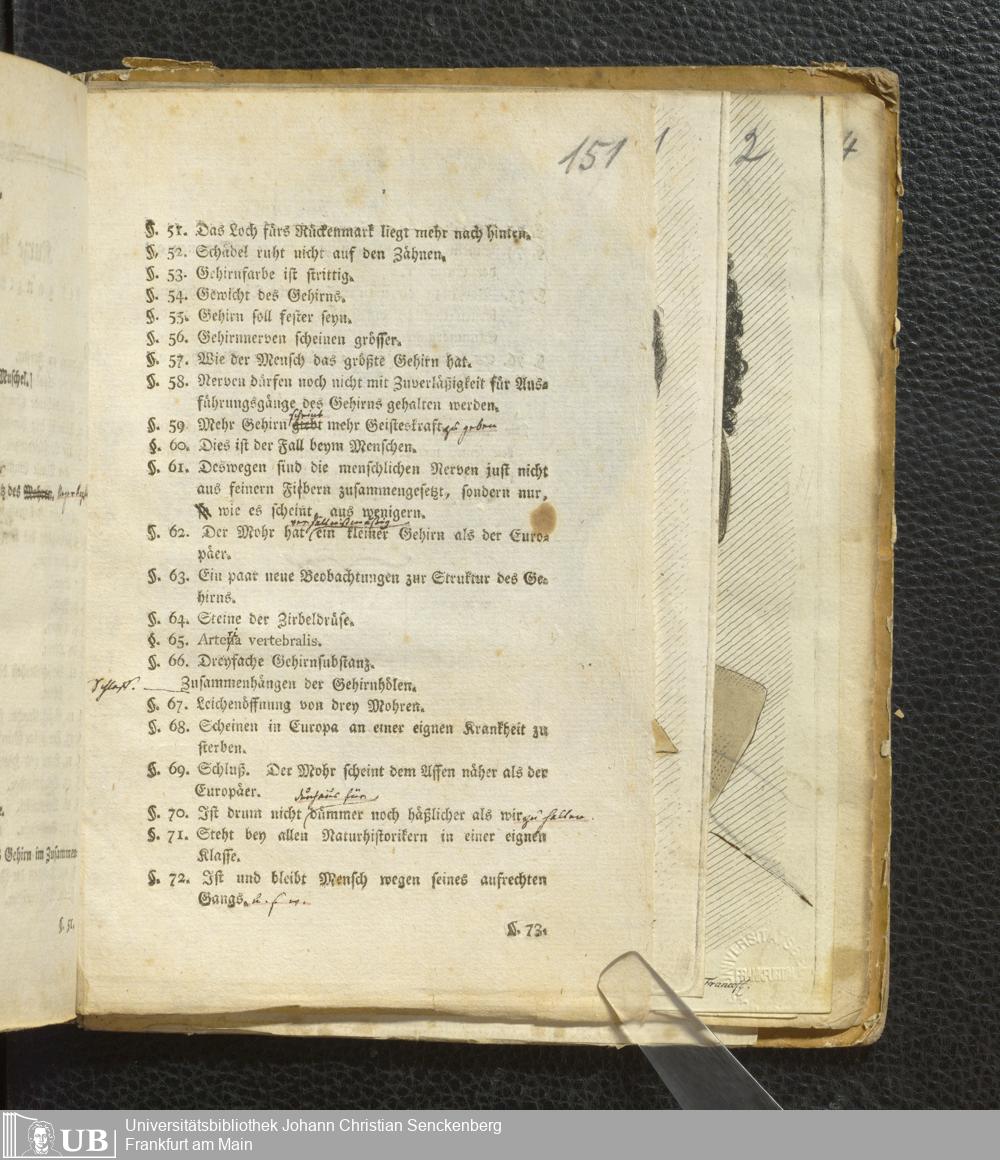 151
1
2
4
§. 51. Das Loch fürs Rückenmark liegt mehr nach hinten.
§. 52. Schädel ruht nicht auf den Zähnen.
§. 53. Gehirnfarbe ist strittig.
§. 54. Gewicht des Gehirns.
§. 55. Gehirn soll fester seyn.
§. 56. Gehirnnerven scheinen grösser.
§. 57. Wie der Mensch das größte Gehirn hat.
§. 58. Nerven dürfen noch nicht mit Zuverläßigkeit für Aus-
führungsgänge des Gehirns gehalten werden.
scheint
§. 59 Mehr Gehirn giebt mehr Geisteskraft zu geben
§. 60. Dies ist der Fall beym Menschen.
§. 61. Deswegen sind die menschlichen Nerven just nicht
aus feinern Fiebern zusammengesetzt, sondern nur,
wie es scheint, aus wenigern.
verhältnißmäßig
§. 62. Der Mohr hat ein kleiner Gehirn als der Euro-
päer.
§. 63. Ein paar neue Beobachtungen zur Struktur des Ge-
hirns.
§. 64. Steine der Zirbeldrüse.
§. 65. Arteria vertebralis.
§. 66. Dreyfache Gehirnsubstanz.
Zusammenhängen der Gehirnhölen.
§. 67. Leichenöffnung von drey Mohren.
§. 68. Scheinen in Europa an einer eignen Krankheit zu
sterben.
§. 69. Schluß. Der Mohr scheint dem Affen näher als der
Europäer.
durchaus für
§. 70. Ist drum nicht dümmer noch häßlicher als wir zu halten.
§. 71. Steht bey allen Naturhistorikern in einer eignen
Klasse.
§. 72. Ist und bleibt Mensch wegen seines aufrechten
Gangs. u. s. w.
§. 73.
Muschel.]
des Mohren
Gehirn im Zusammen
§. 51.
Francof.
UB
Universitätsbibliothek Johann Christian Senckenberg
Frankfurt am Main